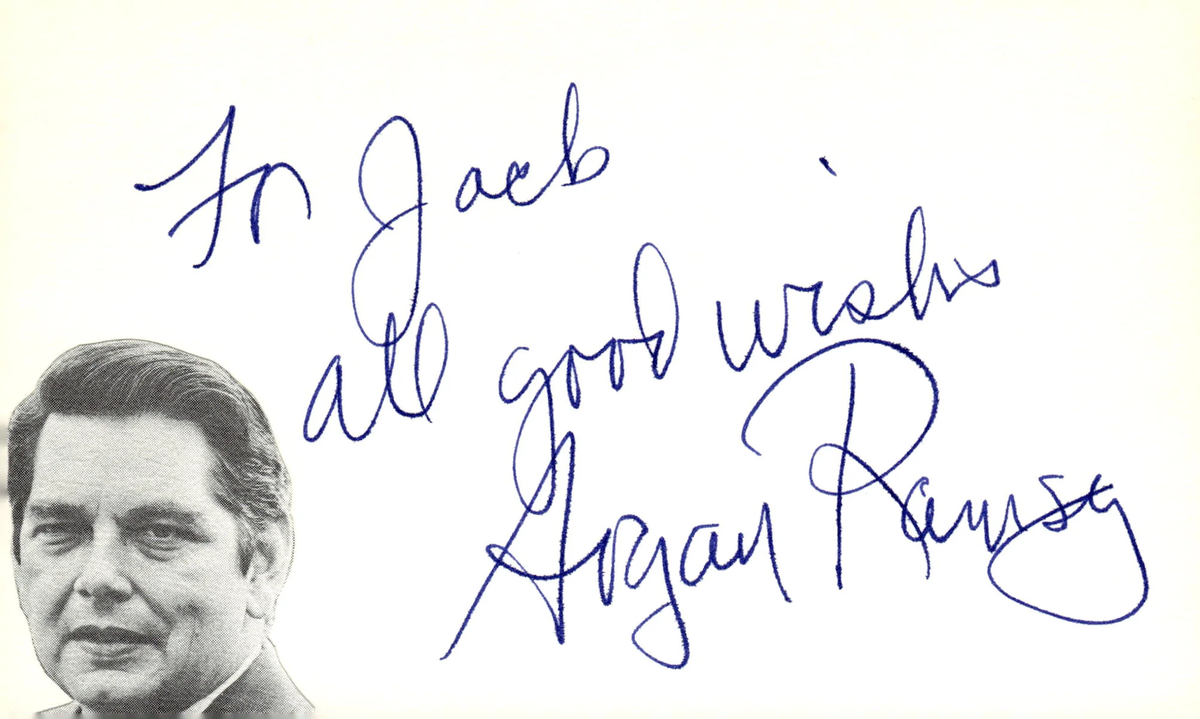 For Jack
all good wishes
Logan Ramsey